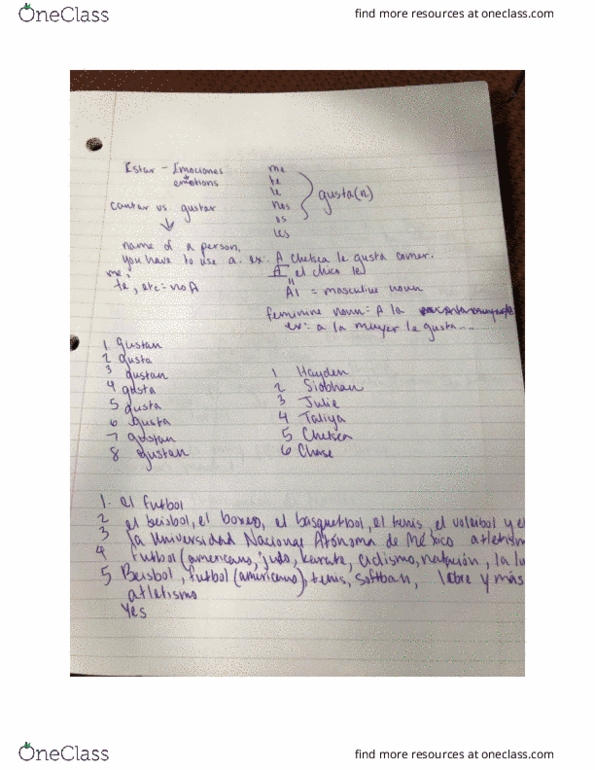 OneClass
find more resources at oneclass.com
Estar - Emociones
emotions
cantar vs gustar
me
te
le
nos
os
les
gusta(n)
name of a person,
you have to use a. ex. A Chelsea le gusta comer.
me,
te, etc = no A
A el chico le
Al = masculine noun
feminine noun: A la
ex: a la muyer le gusta....
1 Gustan
2 gusta
3 gustan
4 gusta
5 gusta
6 gusta
7 gustan
8 gustan
1 Hayden
2 Siobhan
3 Julie
4 Taliya
5 Chelsea
6 Chase
1. el futbol
2 el beisbol, el boxeo, el basquetbol, el tenis, el voleibol y el
3 la Universidad Nacionae Atónoma de México atletism
4 futbol (americano, judo, karate, ciclismo, natación, la lu
5 Beisbol, futbol (americano), tenis, softban, libre y más
atletismo
Yes
OneClass
find more resources at oneclass.com